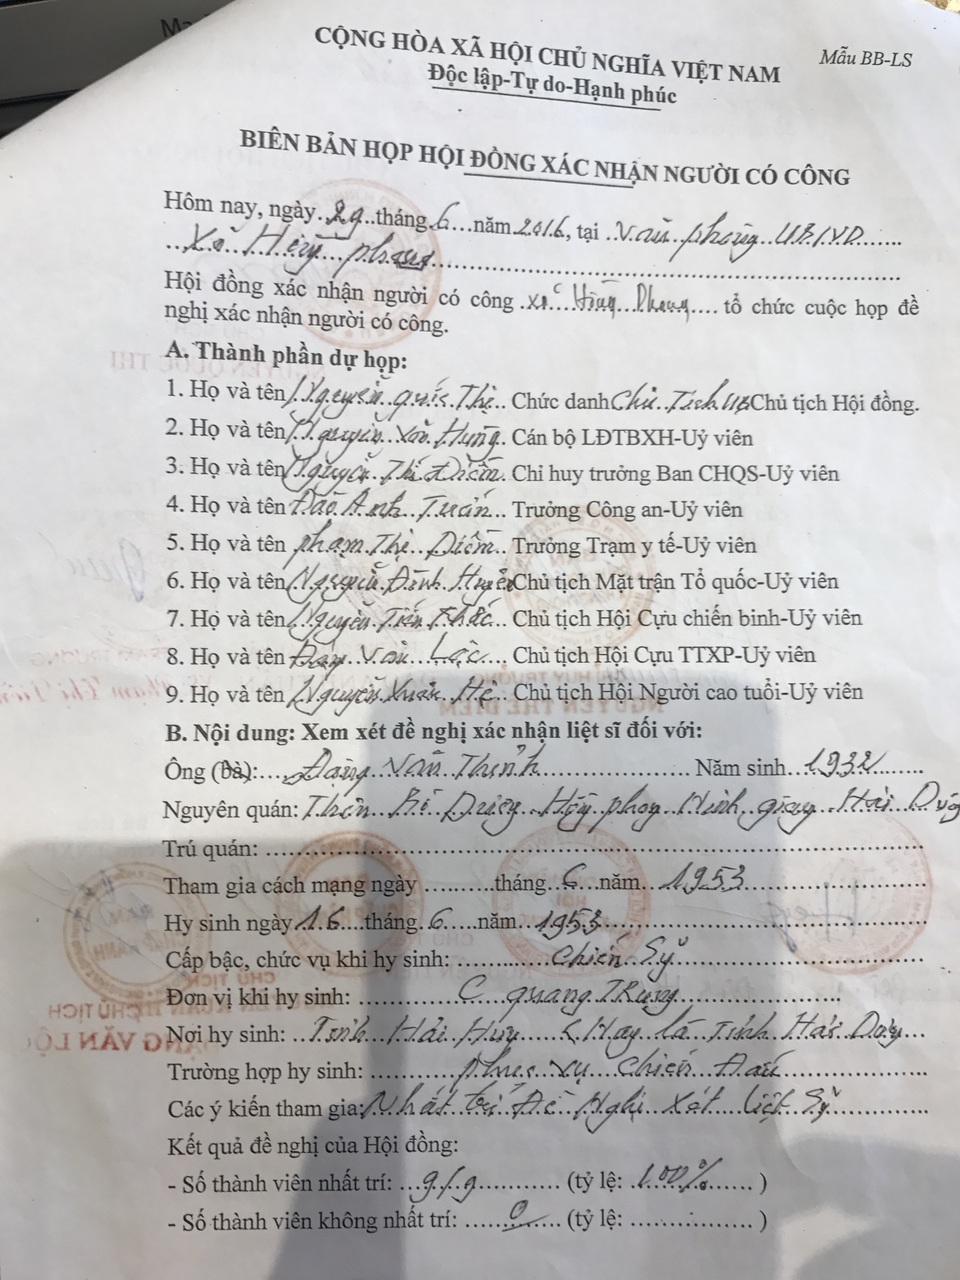 CỘNG HÒA XÃ HỘI CHỦ NGHĨA VIỆT NAM
Mẫu BB-LS
Độc lập-Tự do-Hạnh phúc
BIÊN BẢN HỌP HỘI ĐỒNG XÁC NHẬN NGƯỜI CÓ CÔNG
Hôm nay, ngày 29 tháng 6 năm 2016, tại Văn phòng UBND
Xã Hồng phong
Hội đồng xác nhận người có công xã Hồng Phong tổ chức cuộc họp đề
nghị xác nhận người có công.
A. Thành phần dự họp:
1. Họ và tên Nguyễn Quốc Thị Chức danh Chủ Tịch UB Chủ tịch Hội đồng.
2. Họ và tên Nguyễn Văn Hưng Cán bộ LĐTBXH-Uỷ viên
3. Họ và tên Nguyễn Thế Điềm Chỉ huy trưởng Ban CHQS-Uỷ viên
4. Họ và tên Đào Anh Tuấn Trưởng Công an-Uỷ viên
5. Họ và tên phạm Thị Diễn Trưởng Trạm y tế-Uỷ viên
6. Họ và tên Nguyễn Đình Chủ tịch Mặt trận Tổ quốc-Uỷ viên
7. Họ và tên Nguyễn Tiến Khắc Chủ tịch Hội Cựu chiến binh-Uỷ viên
8. Họ và tên Đặng Văn Lộc Chủ tịch Hội Cựu TTXP-Uỷ viên
9. Họ và tên Nguyễn Xuân Hệ Chủ tịch Hội Người cao tuổi-Uỷ viên
B. Nội dung: Xem xét đề nghị xác nhận liệt sĩ đối với:
Ông (bà): Đặng Văn Thịnh Năm sinh 1932
Nguyên quán: Thôn Hồng phong Ninh giang Hải Dương
Trú quán:
Tham gia cách mạng ngày tháng 6 năm 1953
Hy sinh ngày 16 tháng 6 năm 1953
Cấp bậc, chức vụ khi hy sinh: Chiến Sỹ
Đơn vị khi hy sinh: C quang TRung
Nơi hy sinh: Tỉnh Hải Hưng Nay là Tỉnh Hải Dương
Trường hợp hy sinh: phục vụ chiến Đấu
Các ý kiến tham gia: Nhất trí Đề Nghị Xét liệt Sỹ
Kết quả đề nghị của Hội đồng:
- Số thành viên nhất trí: 9/9 (tỷ lệ: 100%)
- Số thành viên không nhất trí: 0 (tỷ lệ: )